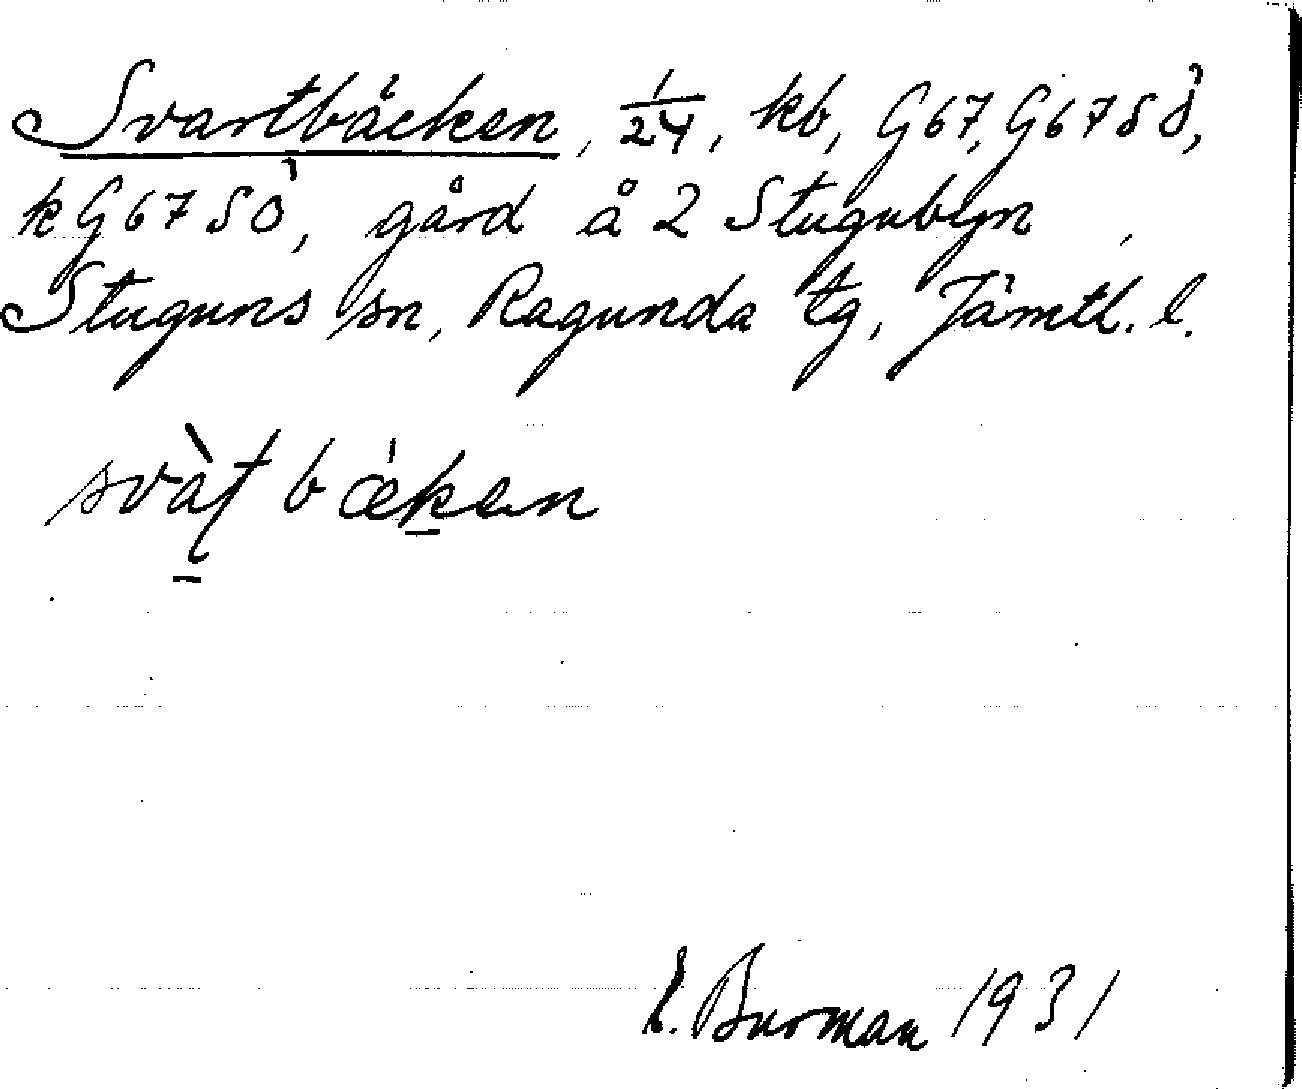 Svartbäcken, 1/24, kb, G67, G67SÖ,
kG67SÖ, gård å 2 Stugubyn,
Stuguns sn, Ragunda tg, Jämtl. l.
svàt bækən
E. Burman 1931